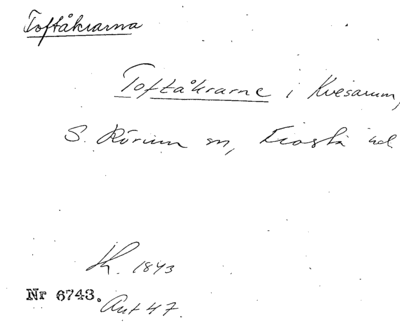 Toftåkrarna
Toftåkrarne i Kvesarum,
S. Rörum sn, Frosta hd
Sk. 1843
Nr 6743. Ant 47.